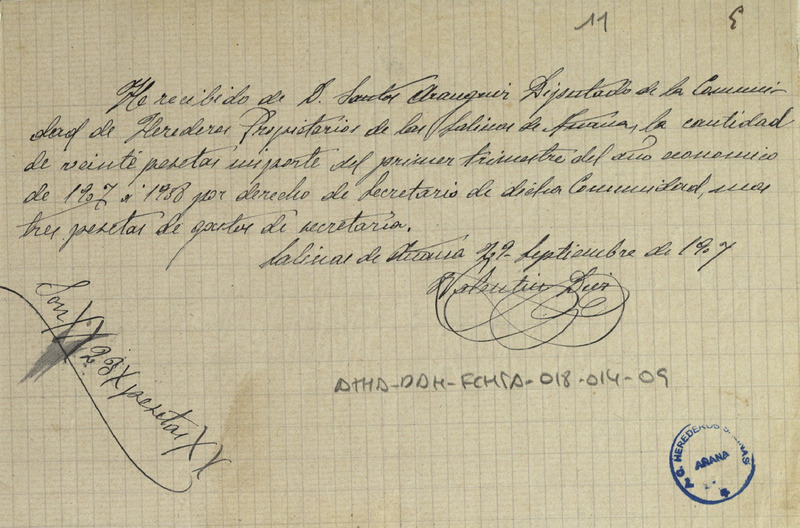 11
He recibido de D. Santos Aranguiz Diputado de la Comuni-
dad de Herederos Propietarios de las Salinas de Añana, la cantidad
de veinte pesetas importe del primer trimestre del año economico
de 1907 á 1908 por derecho de Secretario de dicha Comunidad, mas
tres pesetas de gastos de secretaria.
Salinas de Añana 29 Septiembre de 1907
Valentin Diez
Son XX 23 X pesetas XX
ATHA-DAH-FCHTA-018-014-09
A.G. HEREDEROS SALINAS
AÑANA